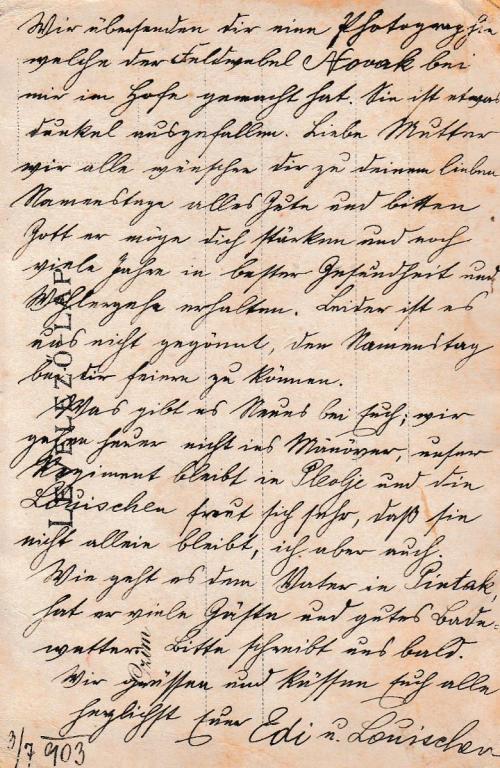 Wir übersenden dir eine Photographie
welche der Feldwebel Novak bei
mir im Hofe gemacht hat. Sie ist etwas
dunkel ausgefallen. Liebe Mutter
wir alle wünschen dir zu deinem lieben
Namenstage alles Gute und bitten
Gott er möge dich stärken und noch
viele Jahre in bester Gesundheit und
Wohlergehn erhalten. Leider ist es
uns nicht gegönnt, den Namenstag
bei dir feiern zu können.
Was gibt es Neues bei Euch; wir
gehen heuer nicht ins Manöver, unser
Regiment bleibt in Plevlje und die
Louischen freut sich sehr, daß sie
nicht allein bleibt, ich aber auch.
Wie geht es dem Vater in Pistak,
hat er viele Gäste und gutes Bade-
wetter. Bitte schreibt uns bald.
Wir grüssen und küssen Euch alle
herzlichst Euer Edi u. Louischen
3/7 903
LEVELEZŐ-LAP